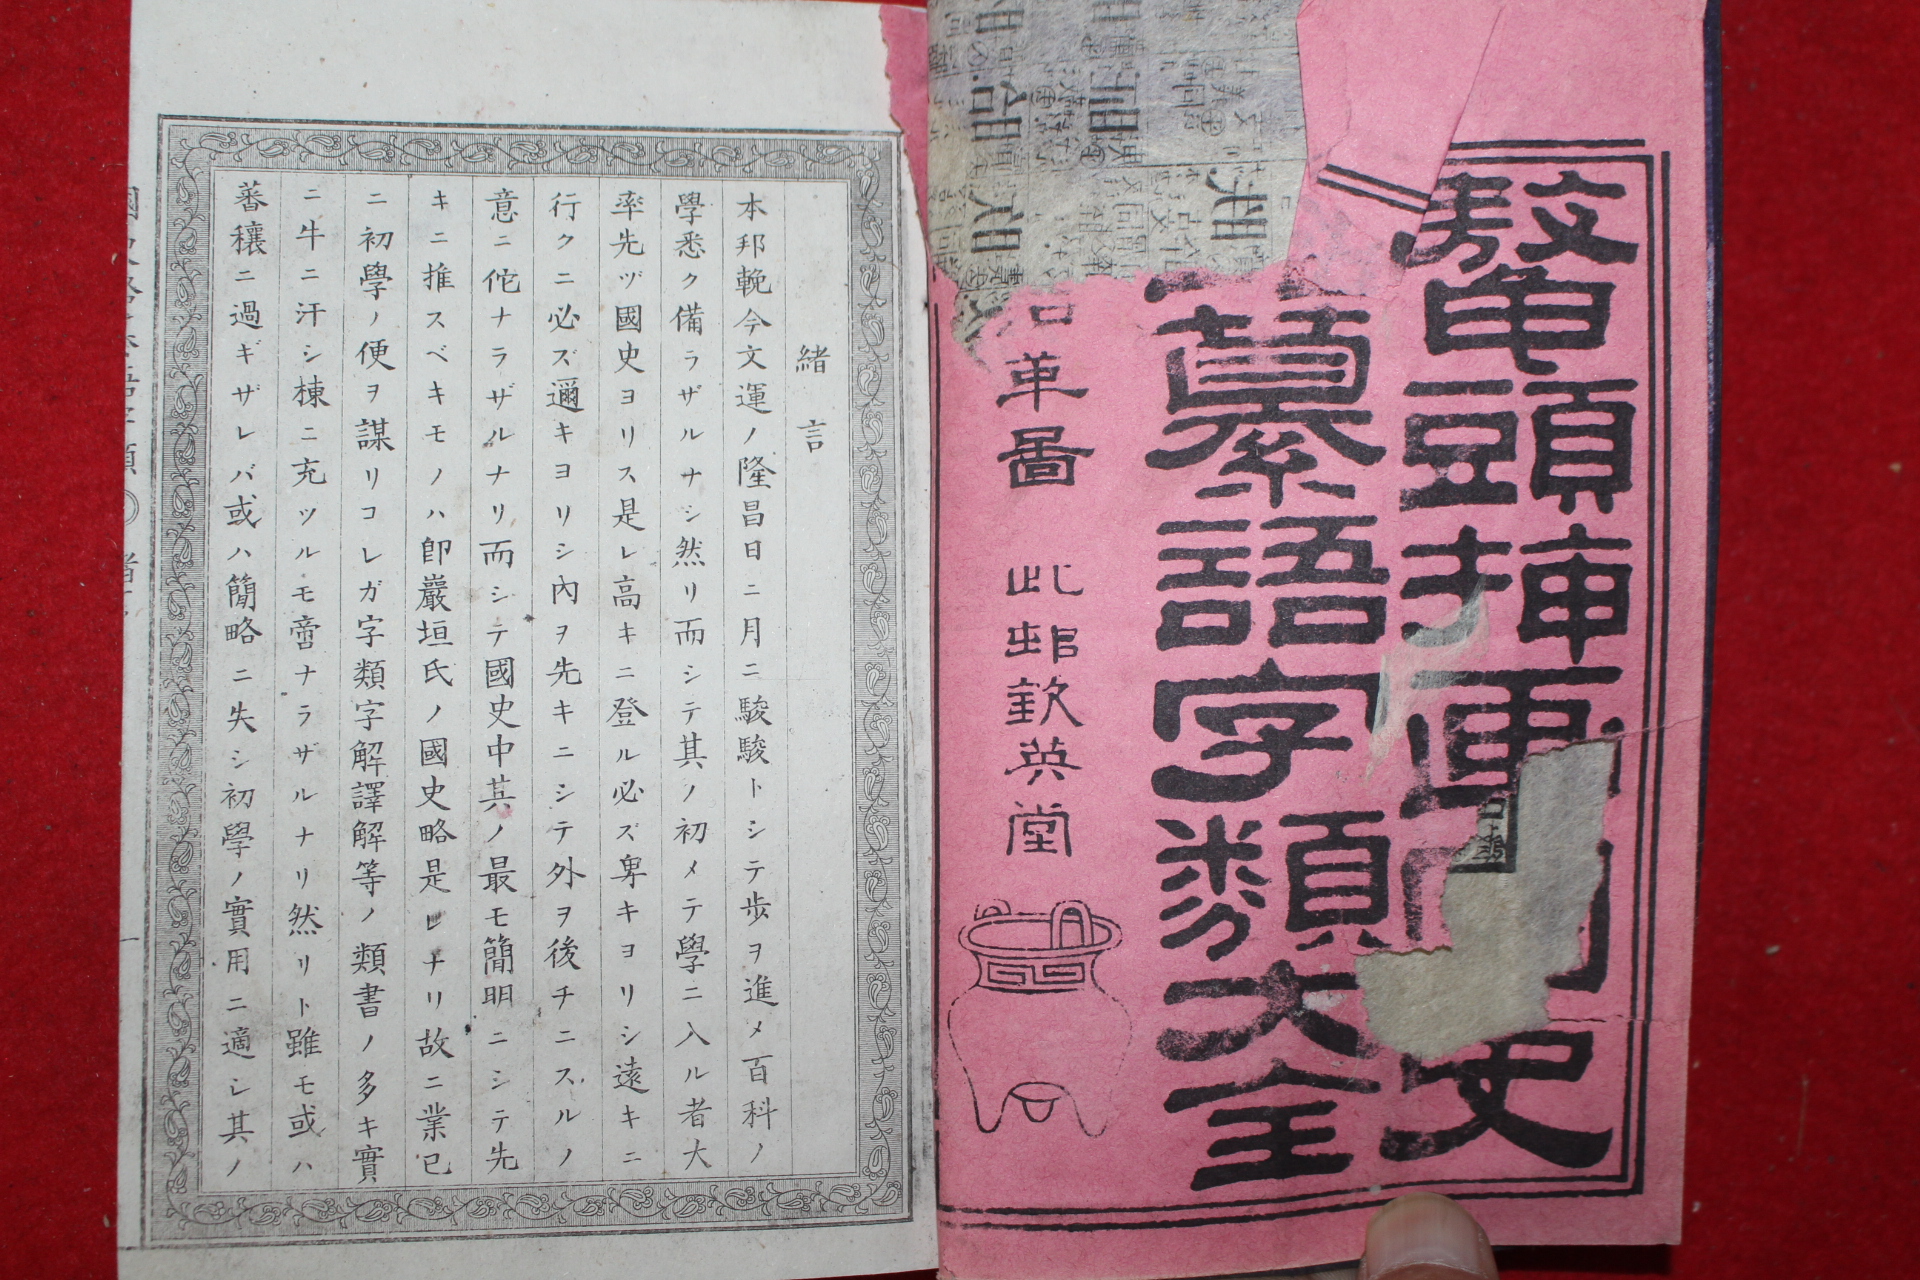 鼇頭挿畫國史
纂語字類大全
革圖 此邨欽英堂
緒言
本邦輓今文運ノ隆昌日ニ月ニ駿駿トシテ歩ヲ進メ百科ノ
學悉ク備ラザルナシ然リ而シテ其ノ初メテ學ニ入ル者大
率先ヅ國史ヨリス是レ高キニ登ル必ズ卑キヨリシ遠キニ
行クニ必ズ邇キヨリシ內ヲ先キニシテ外ヲ後チニスルノ
意ニ佗ナラザルナリ而シテ國史中其ノ最モ簡明ニシテ先
キニ推スベキモノハ卽巖垣氏ノ國史略是レナリ故ニ業已
ニ初學ノ便ヲ謀リコレガ字類字解譯解等ノ類書ノ多キ實
ニ牛ニ汗シ棟ニ充ツルモ啻ナラザルナリ然リト雖モ或ハ
蕃穰ニ過ギザレバ或ハ簡略ニ失シ初學ノ實用ニ適シ其ノ